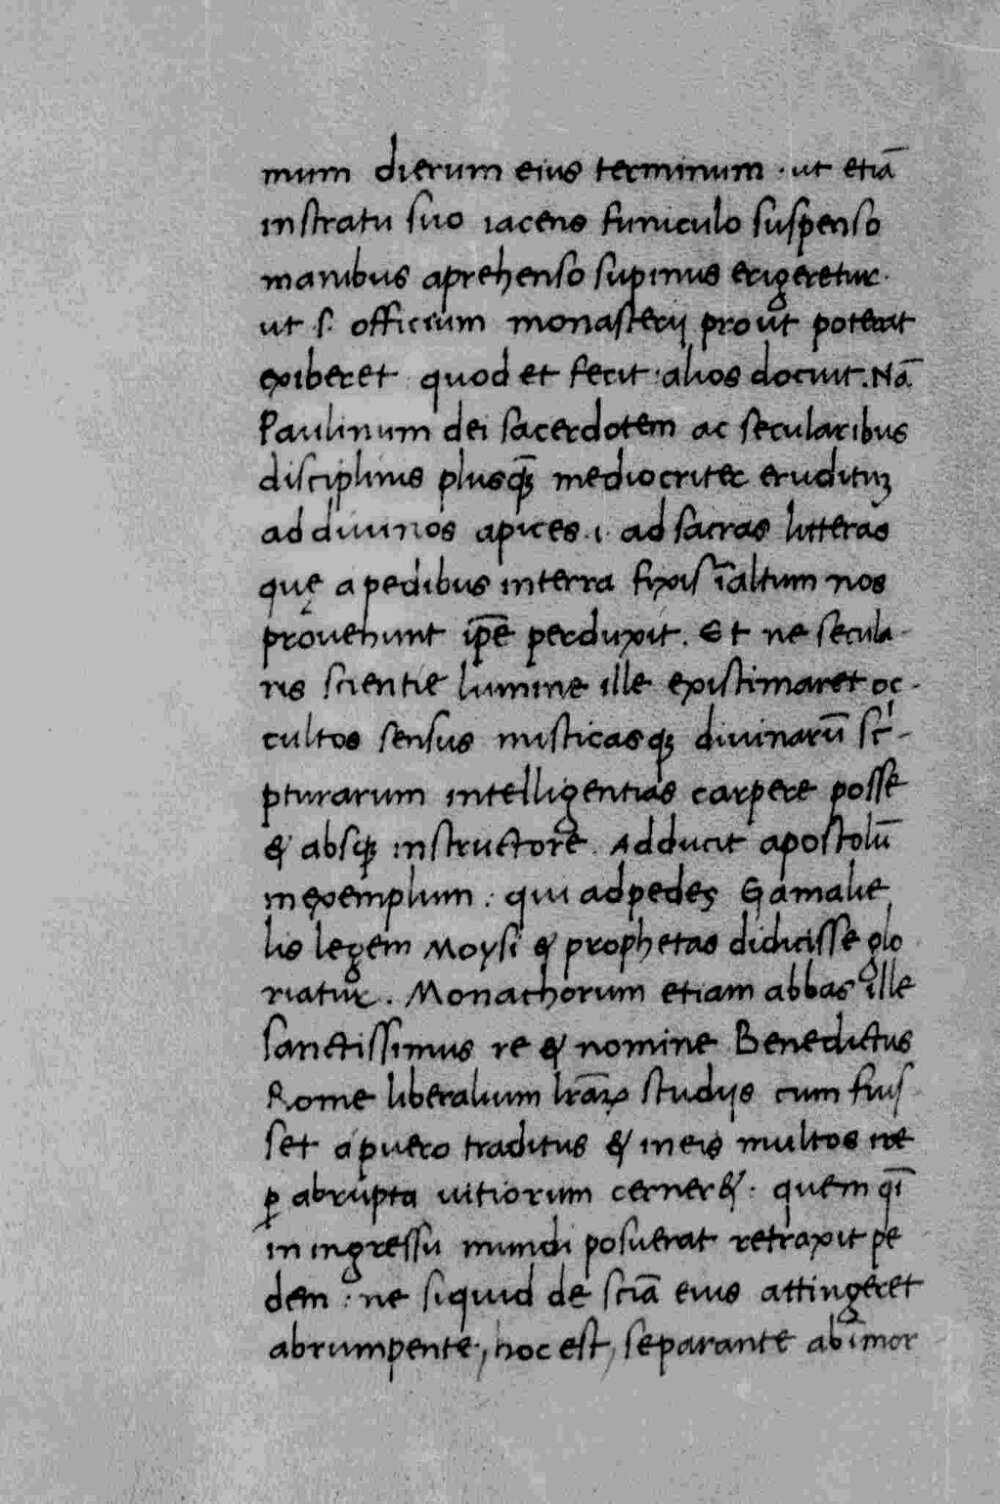 mum dierum eius terminum · ut etiā
in stratu suo iacens funiculo suspenso
manibus aprehenso supinus erigeretur.
ut .s. officium monasterij prout poterat
exiberet quod et fecit : alios docuit. Nā
Paulinum dei sacerdotem ac secularibus
disciplinis plusqꝫ mediocriter eruditiꝫ
ad diuinos apices .i. ad sacras litteras
quę a pedibus in terra fixis ī altum nos
prouehunt ip̄e perduxit. Et ne secula-
ris scientie lumine ille existimaret oc-
cultos sensus misticasqꝫ diuinarū sc̍-
pturarum intelligentias carpere posse
& absqꝫ instructore. Adducit apostolū
in exemplum : qui ad pedes Gamalie
lis legem Moysi & prophetas didicisse glo
riatur. Monachorum etiam abbas ille
sanctissimus re & nomine Benedictus
Rome liberalium lr̄aꝝ studijs cum fuis
set a puero traditus & in eis multos ire
ꝑ abrupta uitiorum cerner& : quem qī
in ingressu mundi posuerat retraxit pe
dem : ne siquid de sciā eius attingeret
abrumpente, hoc est, separante ab īmor